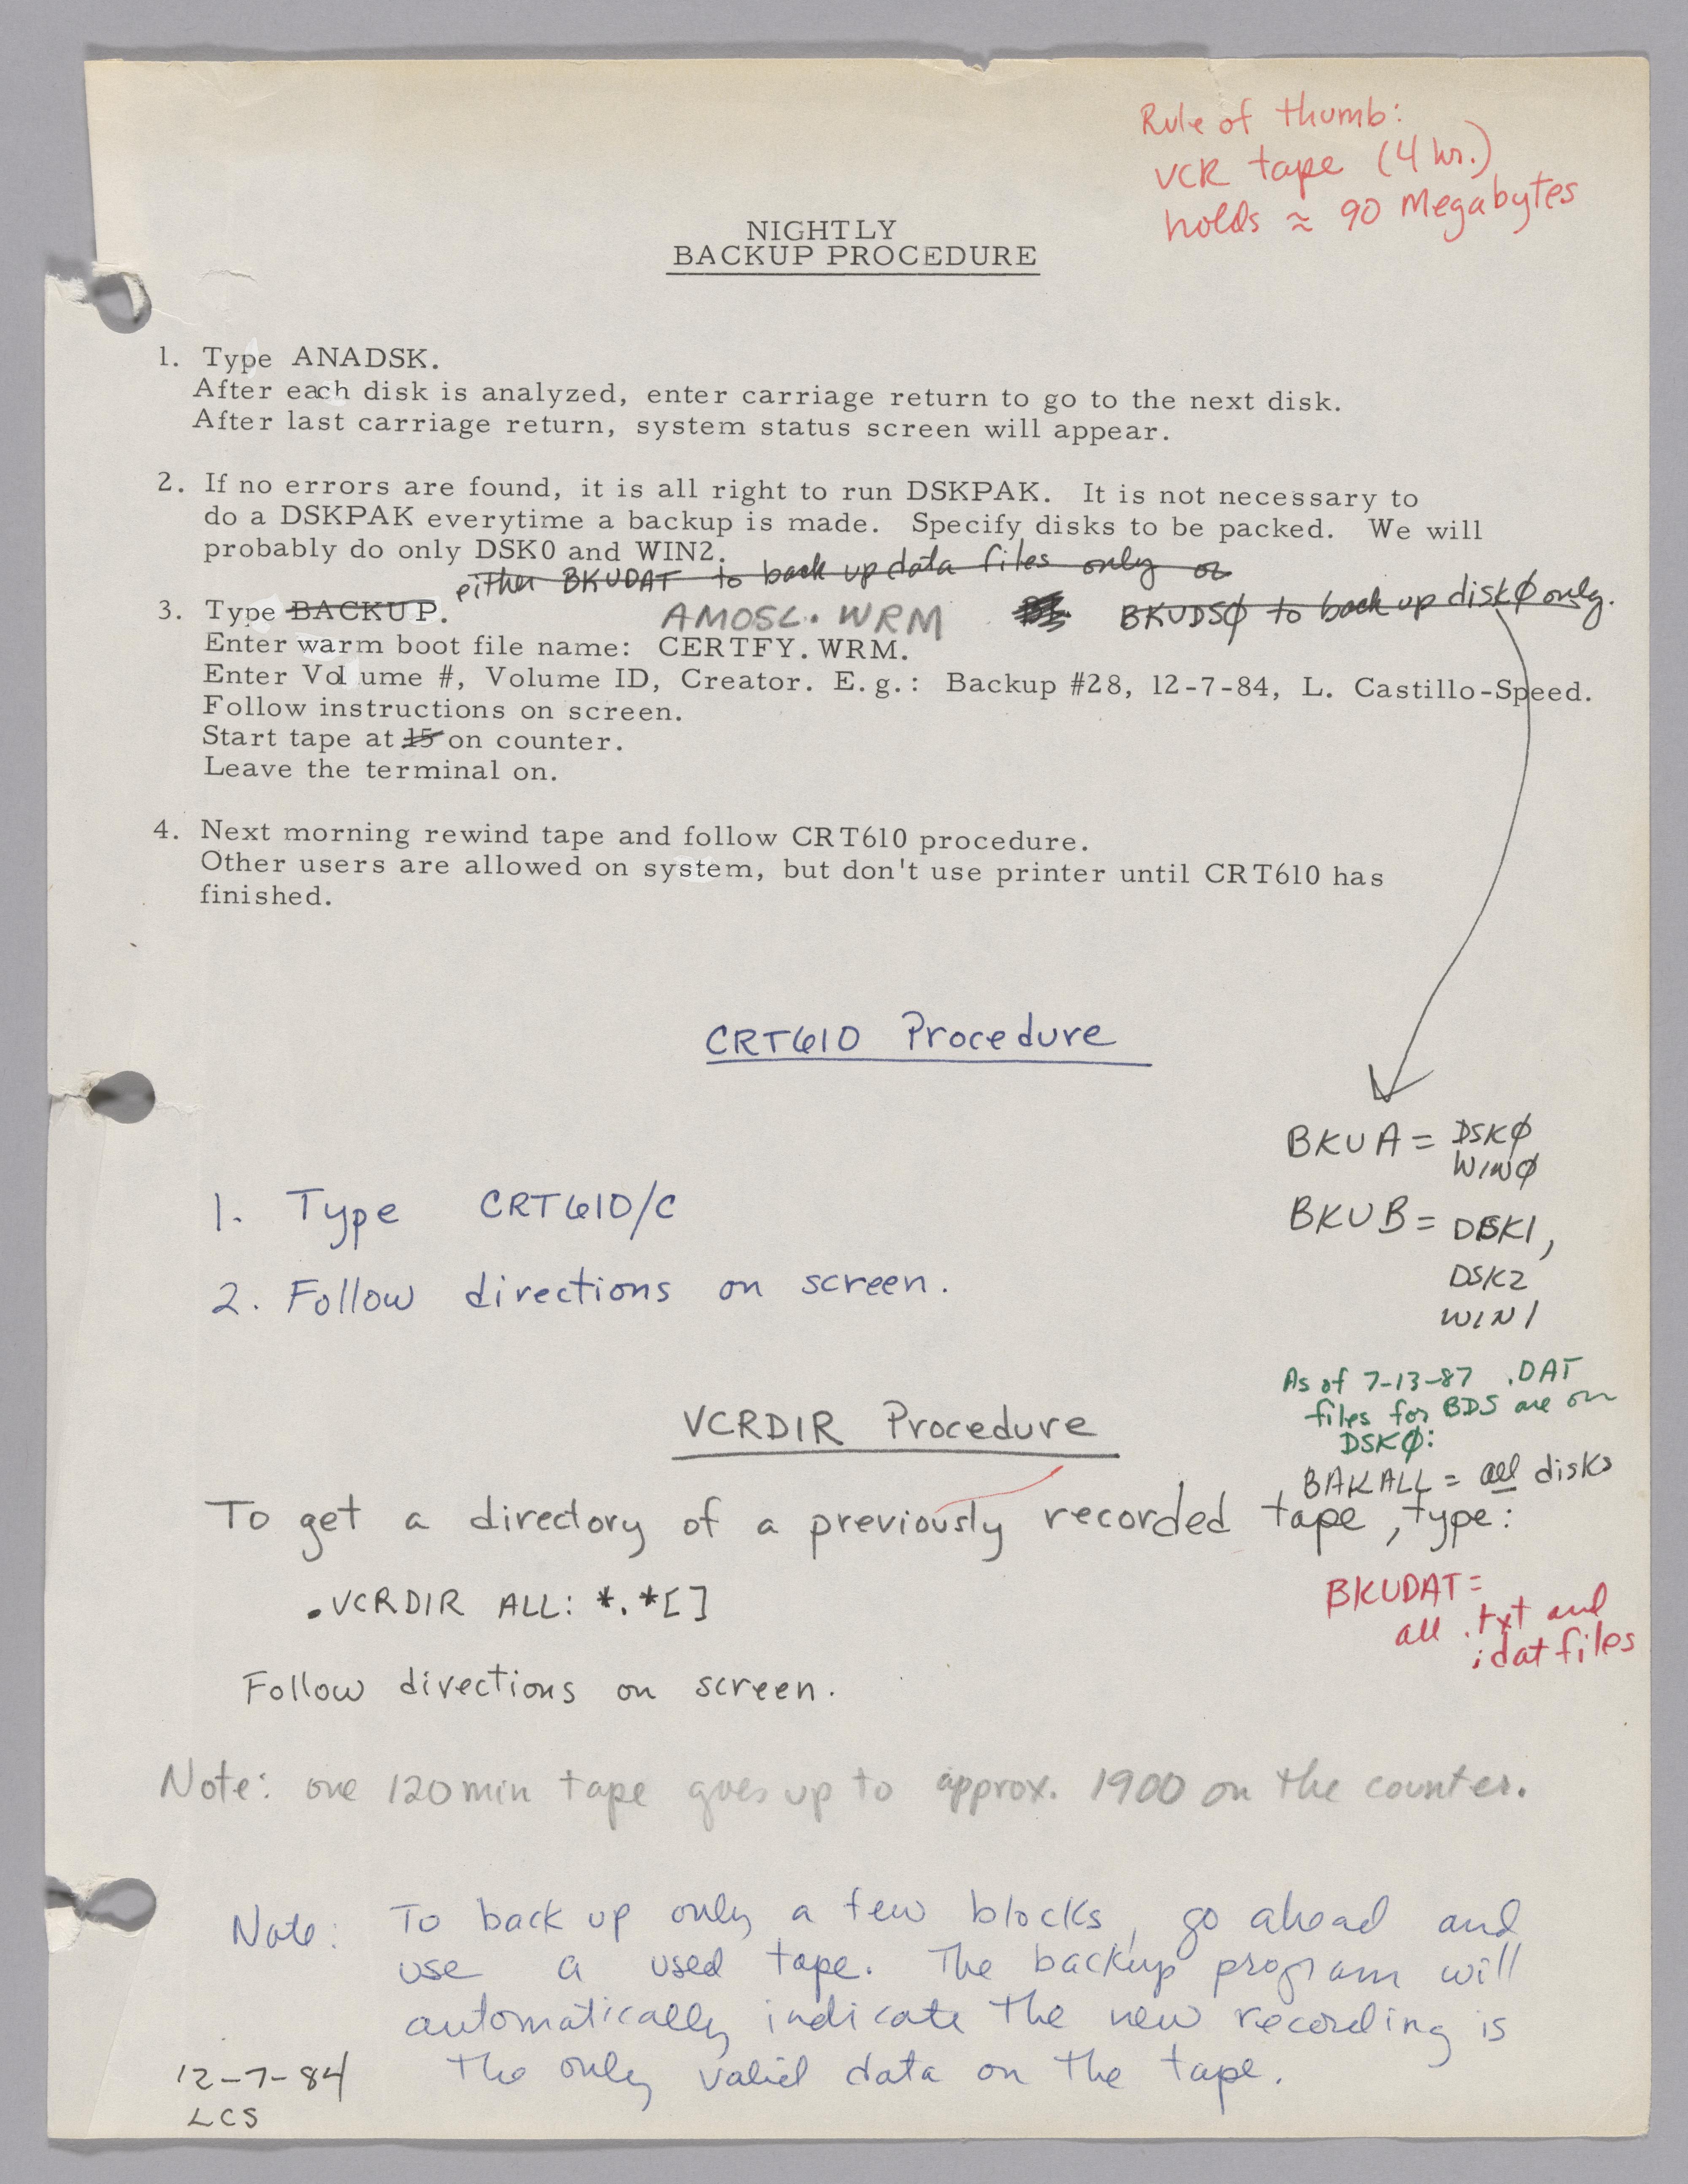 Rule of thumb:
VCR tape (4 hr.)
holds ≈ 90 Megabytes
NIGHTLY
BACKUP PROCEDURE
1. Type ANADSK.
After each disk is analyzed, enter carriage return to go to the next disk.
After last carriage return, system status screen will appear.
2. If no errors are found, it is all right to run DSKPAK. It is not necessary to
do a DSKPAK everytime a backup is made. Specify disks to be packed. We will
probably do only DSK0 and WIN2.
either BKUDAT to back up data files only or
BKUDSØ to back up diskØ only.
3. Type BACKUP.
AMOSL.WRM
Enter warm boot file name: CERTFY.WRM.
Enter Volume #, Volume ID, Creator. E.g.: Backup #28, 12-7-84, L. Castillo-Speed.
Follow instructions on screen.
Start tape at 15 on counter.
Leave the terminal on.
4. Next morning rewind tape and follow CRT610 procedure.
Other users are allowed on system, but don't use printer until CRT610 has
finished.
CRT610 Procedure
1. Type CRT610/C
2. Follow directions on screen.
BKUA = DSKØ
WINØ
BKUB = DSK1,
DSK2
WIN1
As of 7-13-87 .DAT
files for BDS are on
DSKØ:
BAKALL = all disks
VCRDIR Procedure
To get a directory of a previously recorded tape, type:
.VCRDIR ALL: *.*[]
Follow directions on screen.
BKUDAT =
all .txt and
.dat files
Note: one 120 min tape goes up to approx. 1900 on the counter.
Note: To back up only a few blocks, go ahead and
use a used tape. The backup program will
automatically indicate the new recording is
the only valid data on the tape.
12-7-84
LCS